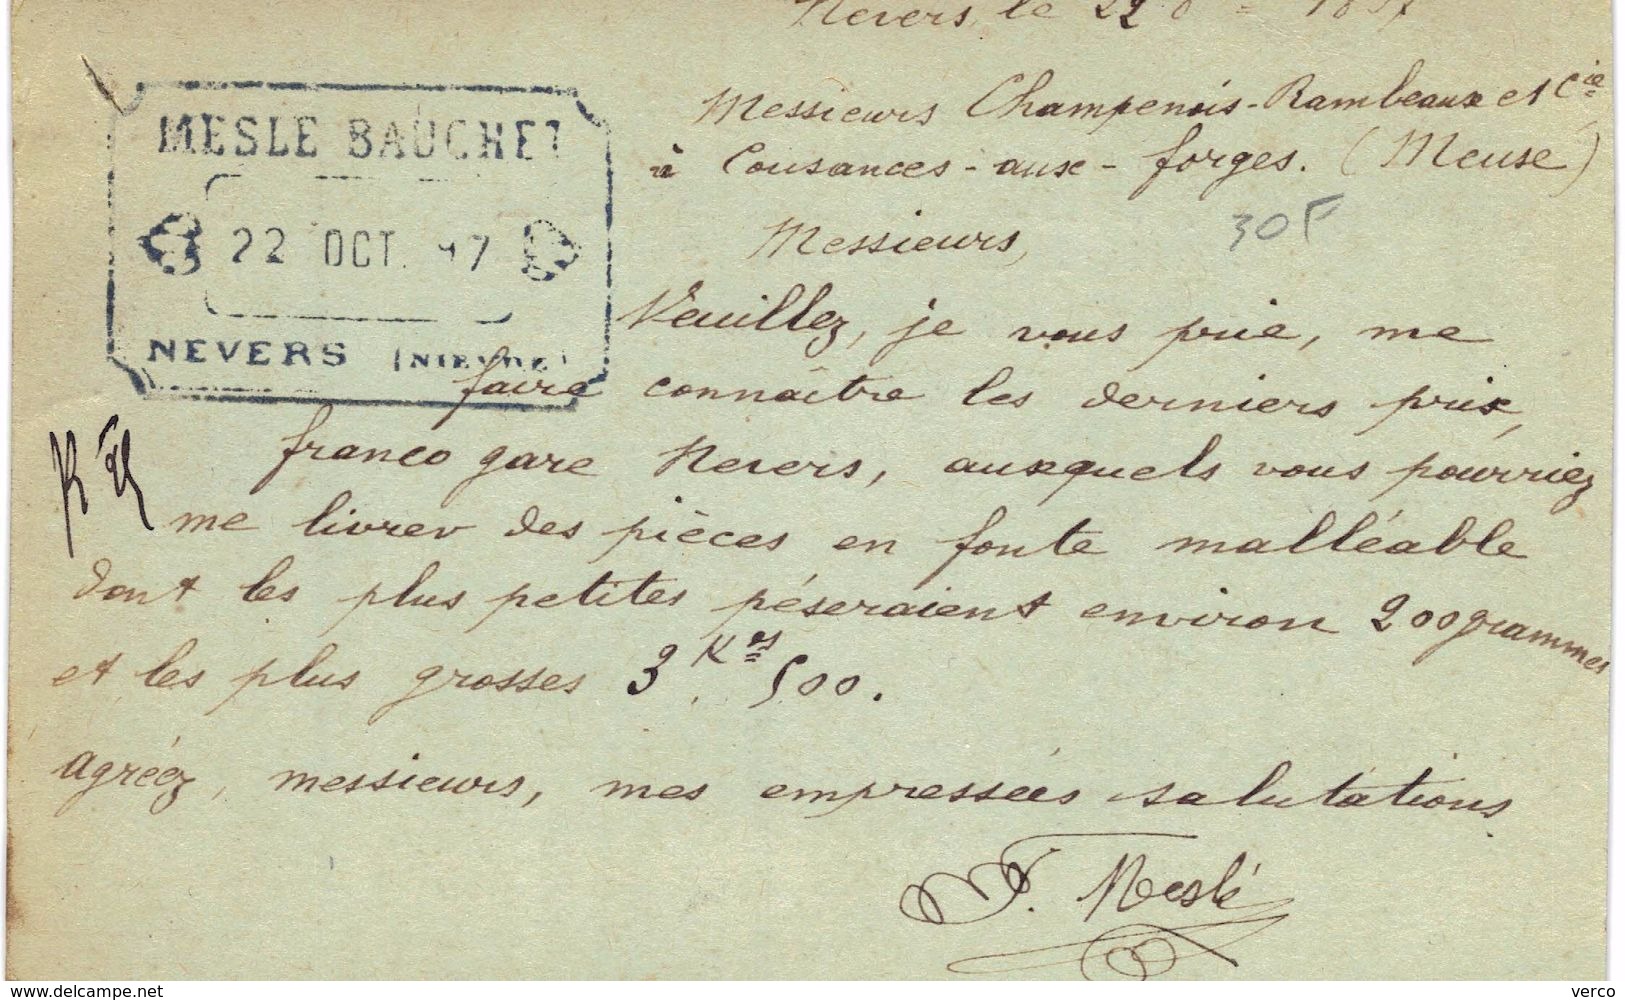 Nevers, le 22 8bre 1897
MESLE BAUCHET
22 OCT. 97
NEVERS (NIEVRE)
Messieurs Champenois-Rambeaux et Cie
à Cousances-aux-forges. (Meuse)
30F
Messieurs,
Veuillez, je vous prie, me
faire connaître les derniers prix,
franco gare Nevers, auxquels vous pourriez
me livrer des pièces en fonte malléable
dont les plus petites péseraient environ 200 grammes
et les plus grosses 3 Kos 500.
Agréez, messieurs, mes empressées salutations
F. Meslé
www.delcampe.net
verco